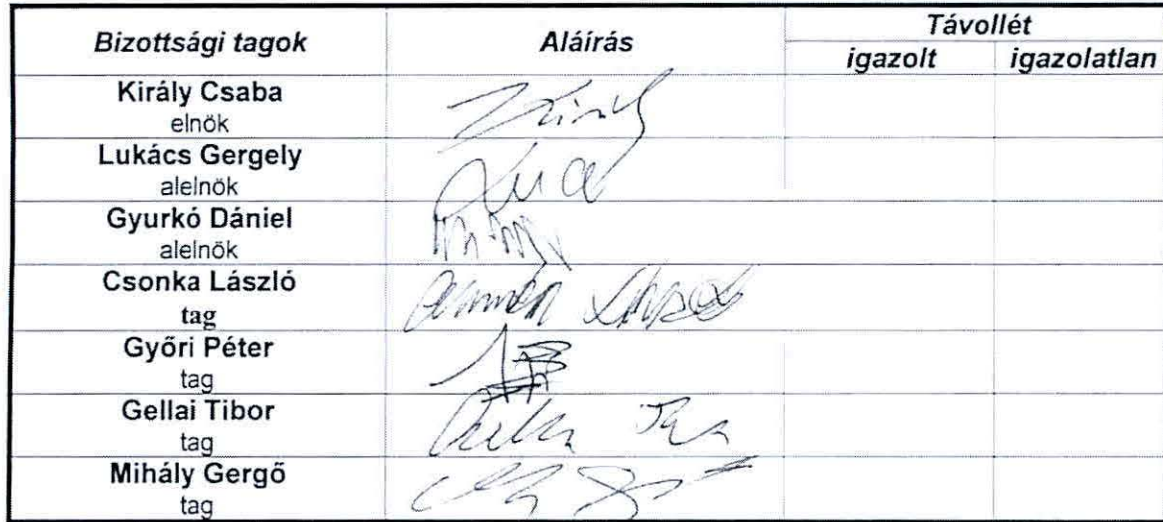 Bizottsági tagok Aláírás Távollét
igazolt igazolatlan
Király Csaba
elnök
Lukács Gergely
alelnök
Gyurkó Dániel
alelnök
Csonka László
tag
Győri Péter
tag
Gellai Tibor
tag
Mihály Gergő
tag